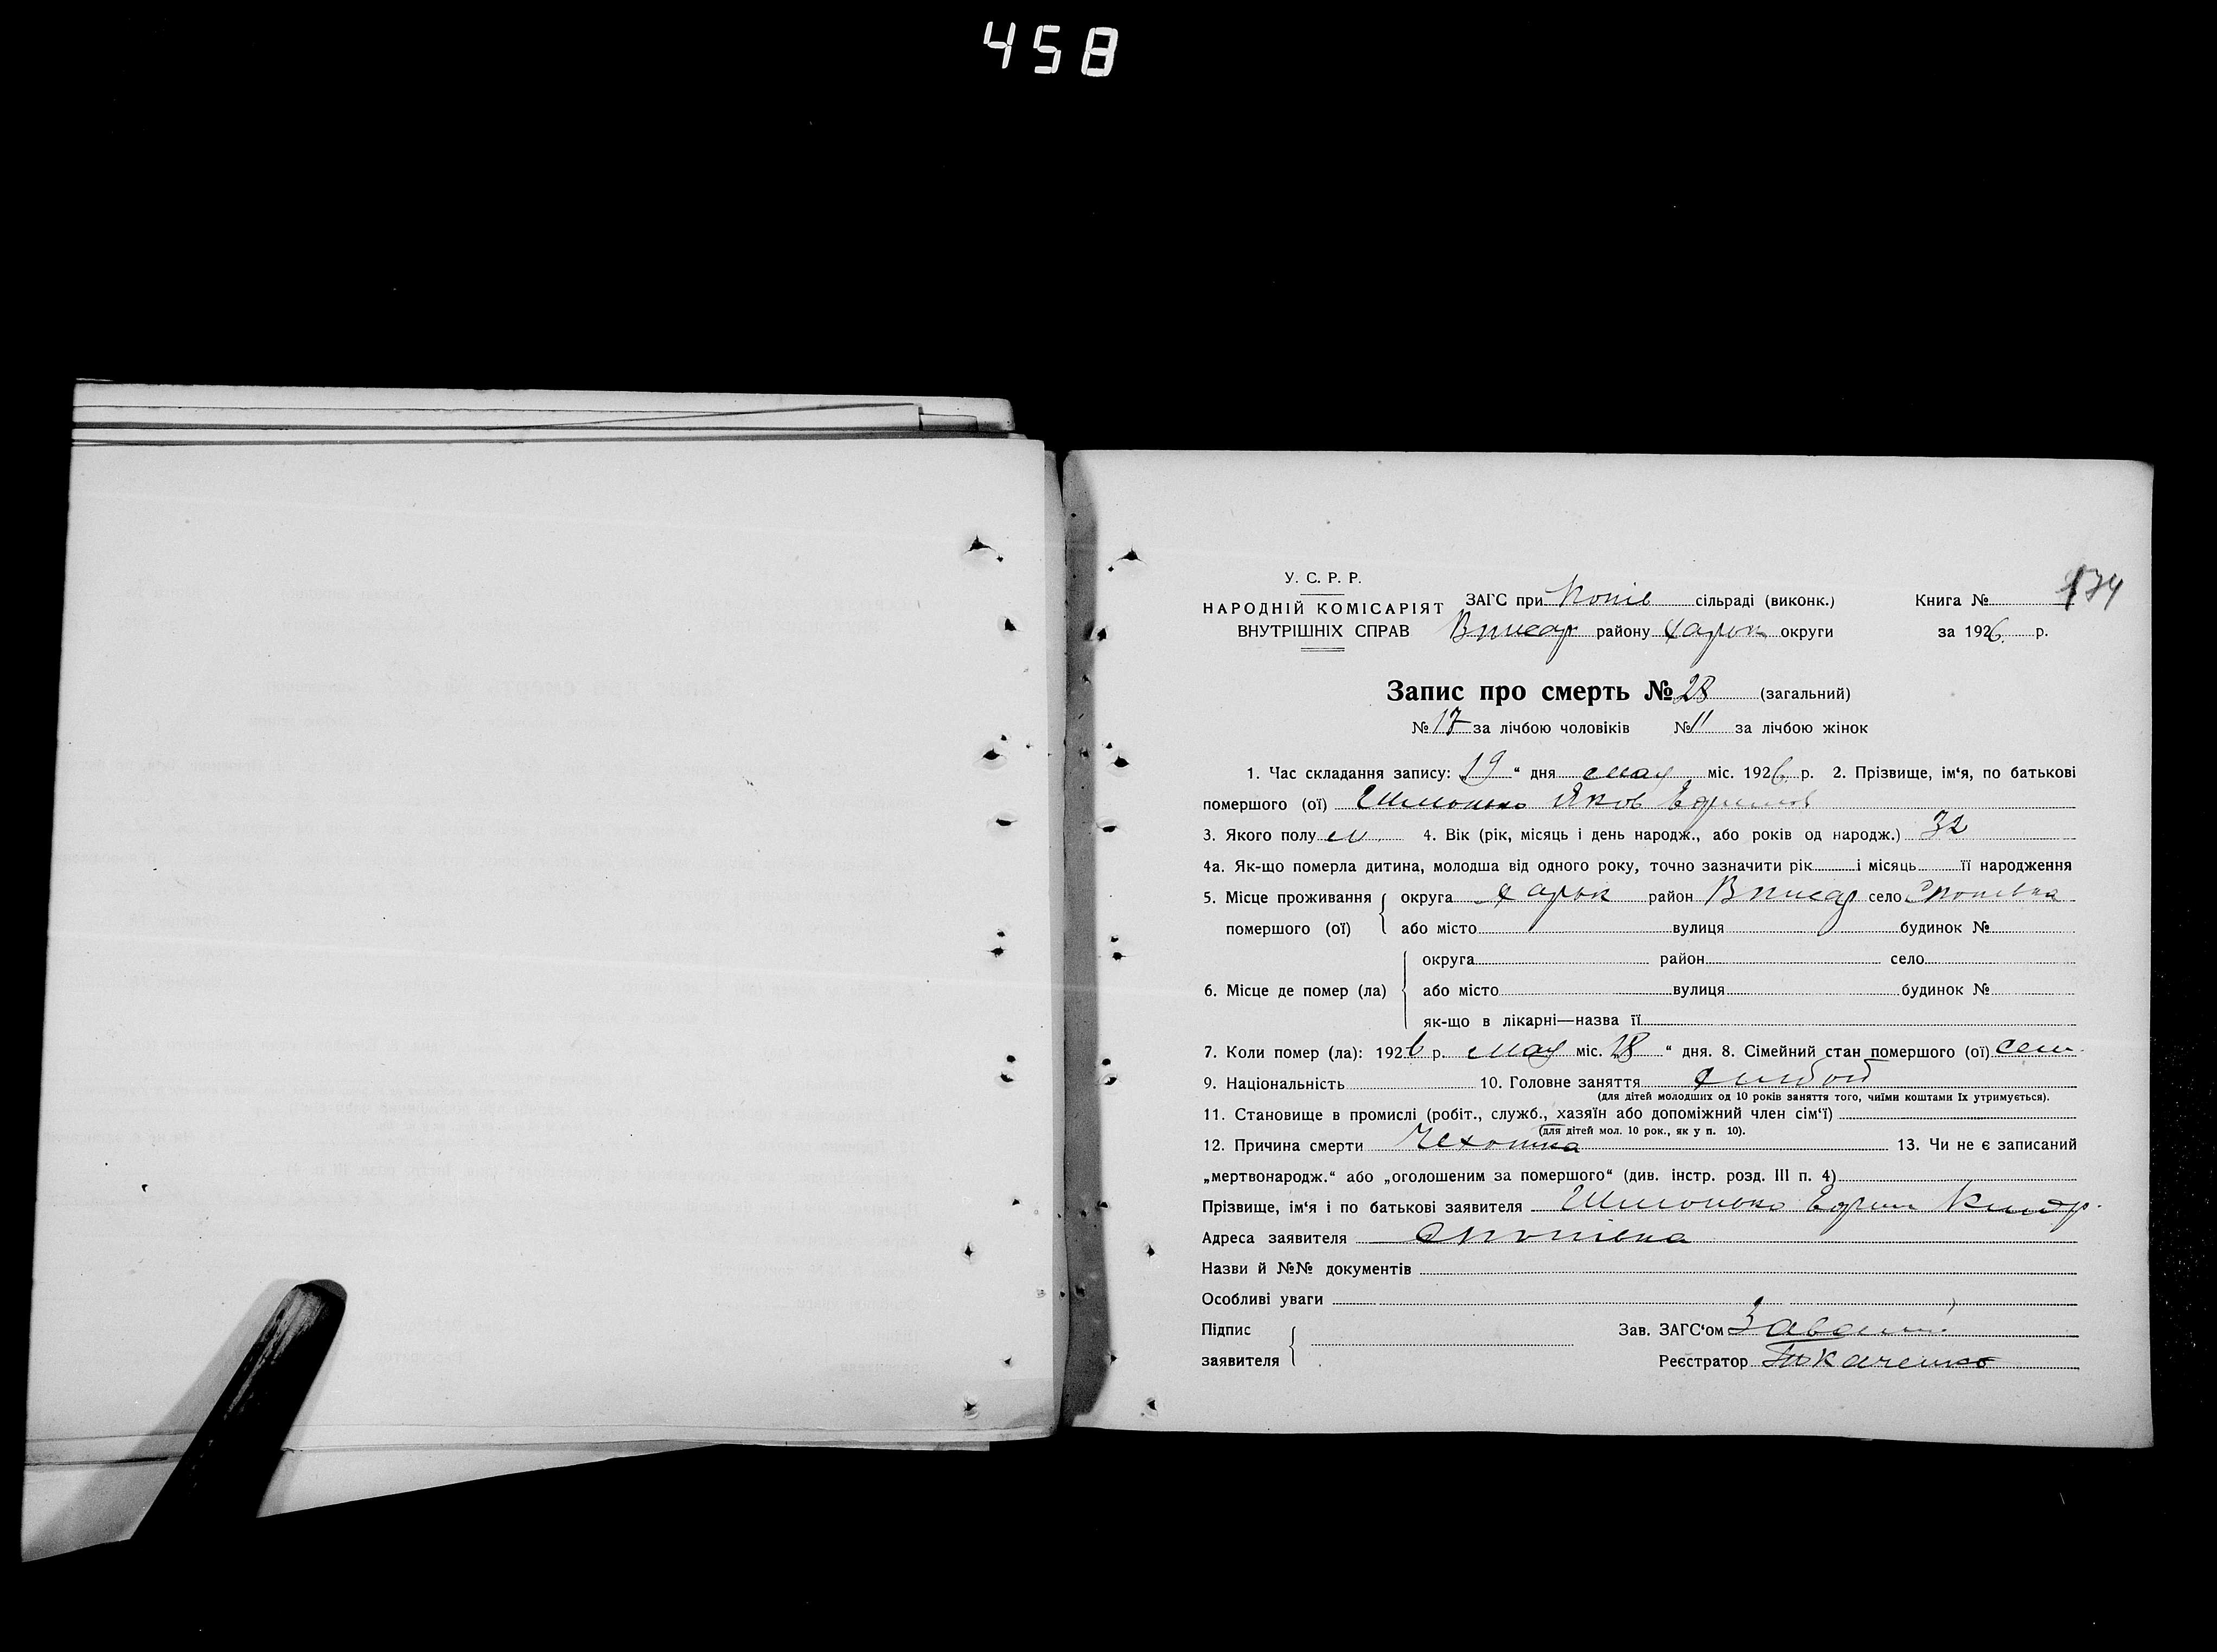 458
174
У. С. Р. Р.
НАРОДНІЙ КОМІСАРІЯТ
ВНУТРІШНІХ СПРАВ
ЗАГС при Копів сільраді (виконк.)
Книга №
Вписар району Харьк округи
за 1926 р.
Запис про смерть № 28 (загальний)
№ 17 за лічбою чоловіків № 11 за лічбою жінок
1. Час складання запису: 19 “ дня мая міс. 1926 р. 2. Прізвище, ім‘я, по батькові
помершого (ої) Яков
3. Якого полу м. 4. Вік (рік, місяць і день народж., або років од народж.) 32
4а. Як-що померла дитина, молодша від одного року, точно зазначити рік і місяць її народження
5. Місце проживання округа Харьк район Вписар село
помершого (ої) або місто вулиця будинок №
округа район село
6. Місце де помер (ла) або місто вулиця будинок №
як-що в лікарні—назва її
7. Коли помер (ла): 1926 р. мая міс. 18 “ дня. 8. Сімейний стан помершого (ої) сем.
9. Національність 10. Головне заняття
(для дітей молодших од 10 років заняття того, чиїми коштами їх утримується).
11. Становище в промислі (робіт., служб., хазяїн або допоміжний член сім‘ї)
(для дітей мол. 10 рок., як у п. 10).
12. Причина смерти Чехотка 13. Чи не є записаний
„мертвонародж.“ або „оголошеним за помершого“ (див. інстр. розд. III п. 4)
Прізвище, ім‘я і по батькові заявителя
Адреса заявителя
Назви й №№ документів
Особливі уваги
Підпис
заявителя
Зав. ЗАГС‘ом
Реєстратор Ткаченко